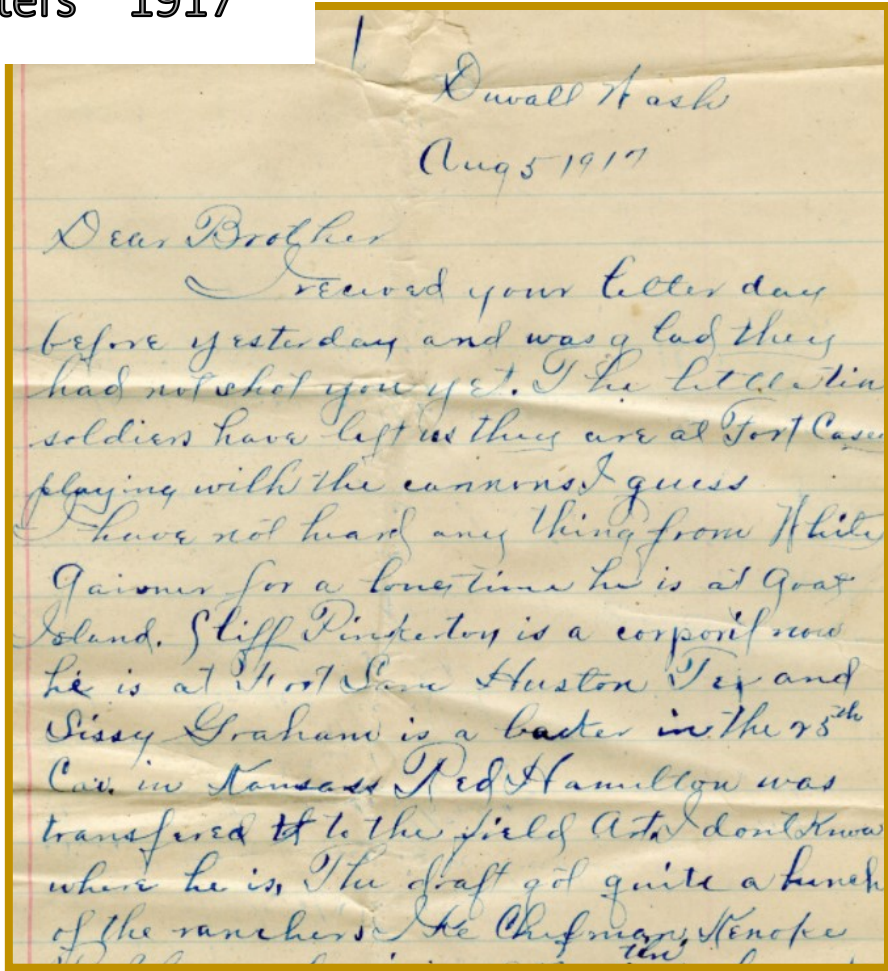 ters 1917
Duvall Wash
Aug 5 1917
Dear Brother
I recived your letter day
before yesterday and was glad they
had not shot you yet. The little tin
soldiers have left us they are at Fort Casey
playing with the cannons I guess
I have not heard any thing from White
Gaisner for a long time he is at Goat
Island. Stiff Pinkerton is a corporil now
he is at Fort Sam Huston Tex and
Sissy Graham is a in the 25th
Cav. in Kansass Red Hamilton was
transfered to the field Art. I dont Know
where he is, The draft got quite a bunch
of the ranchers Ike Chipman,
the